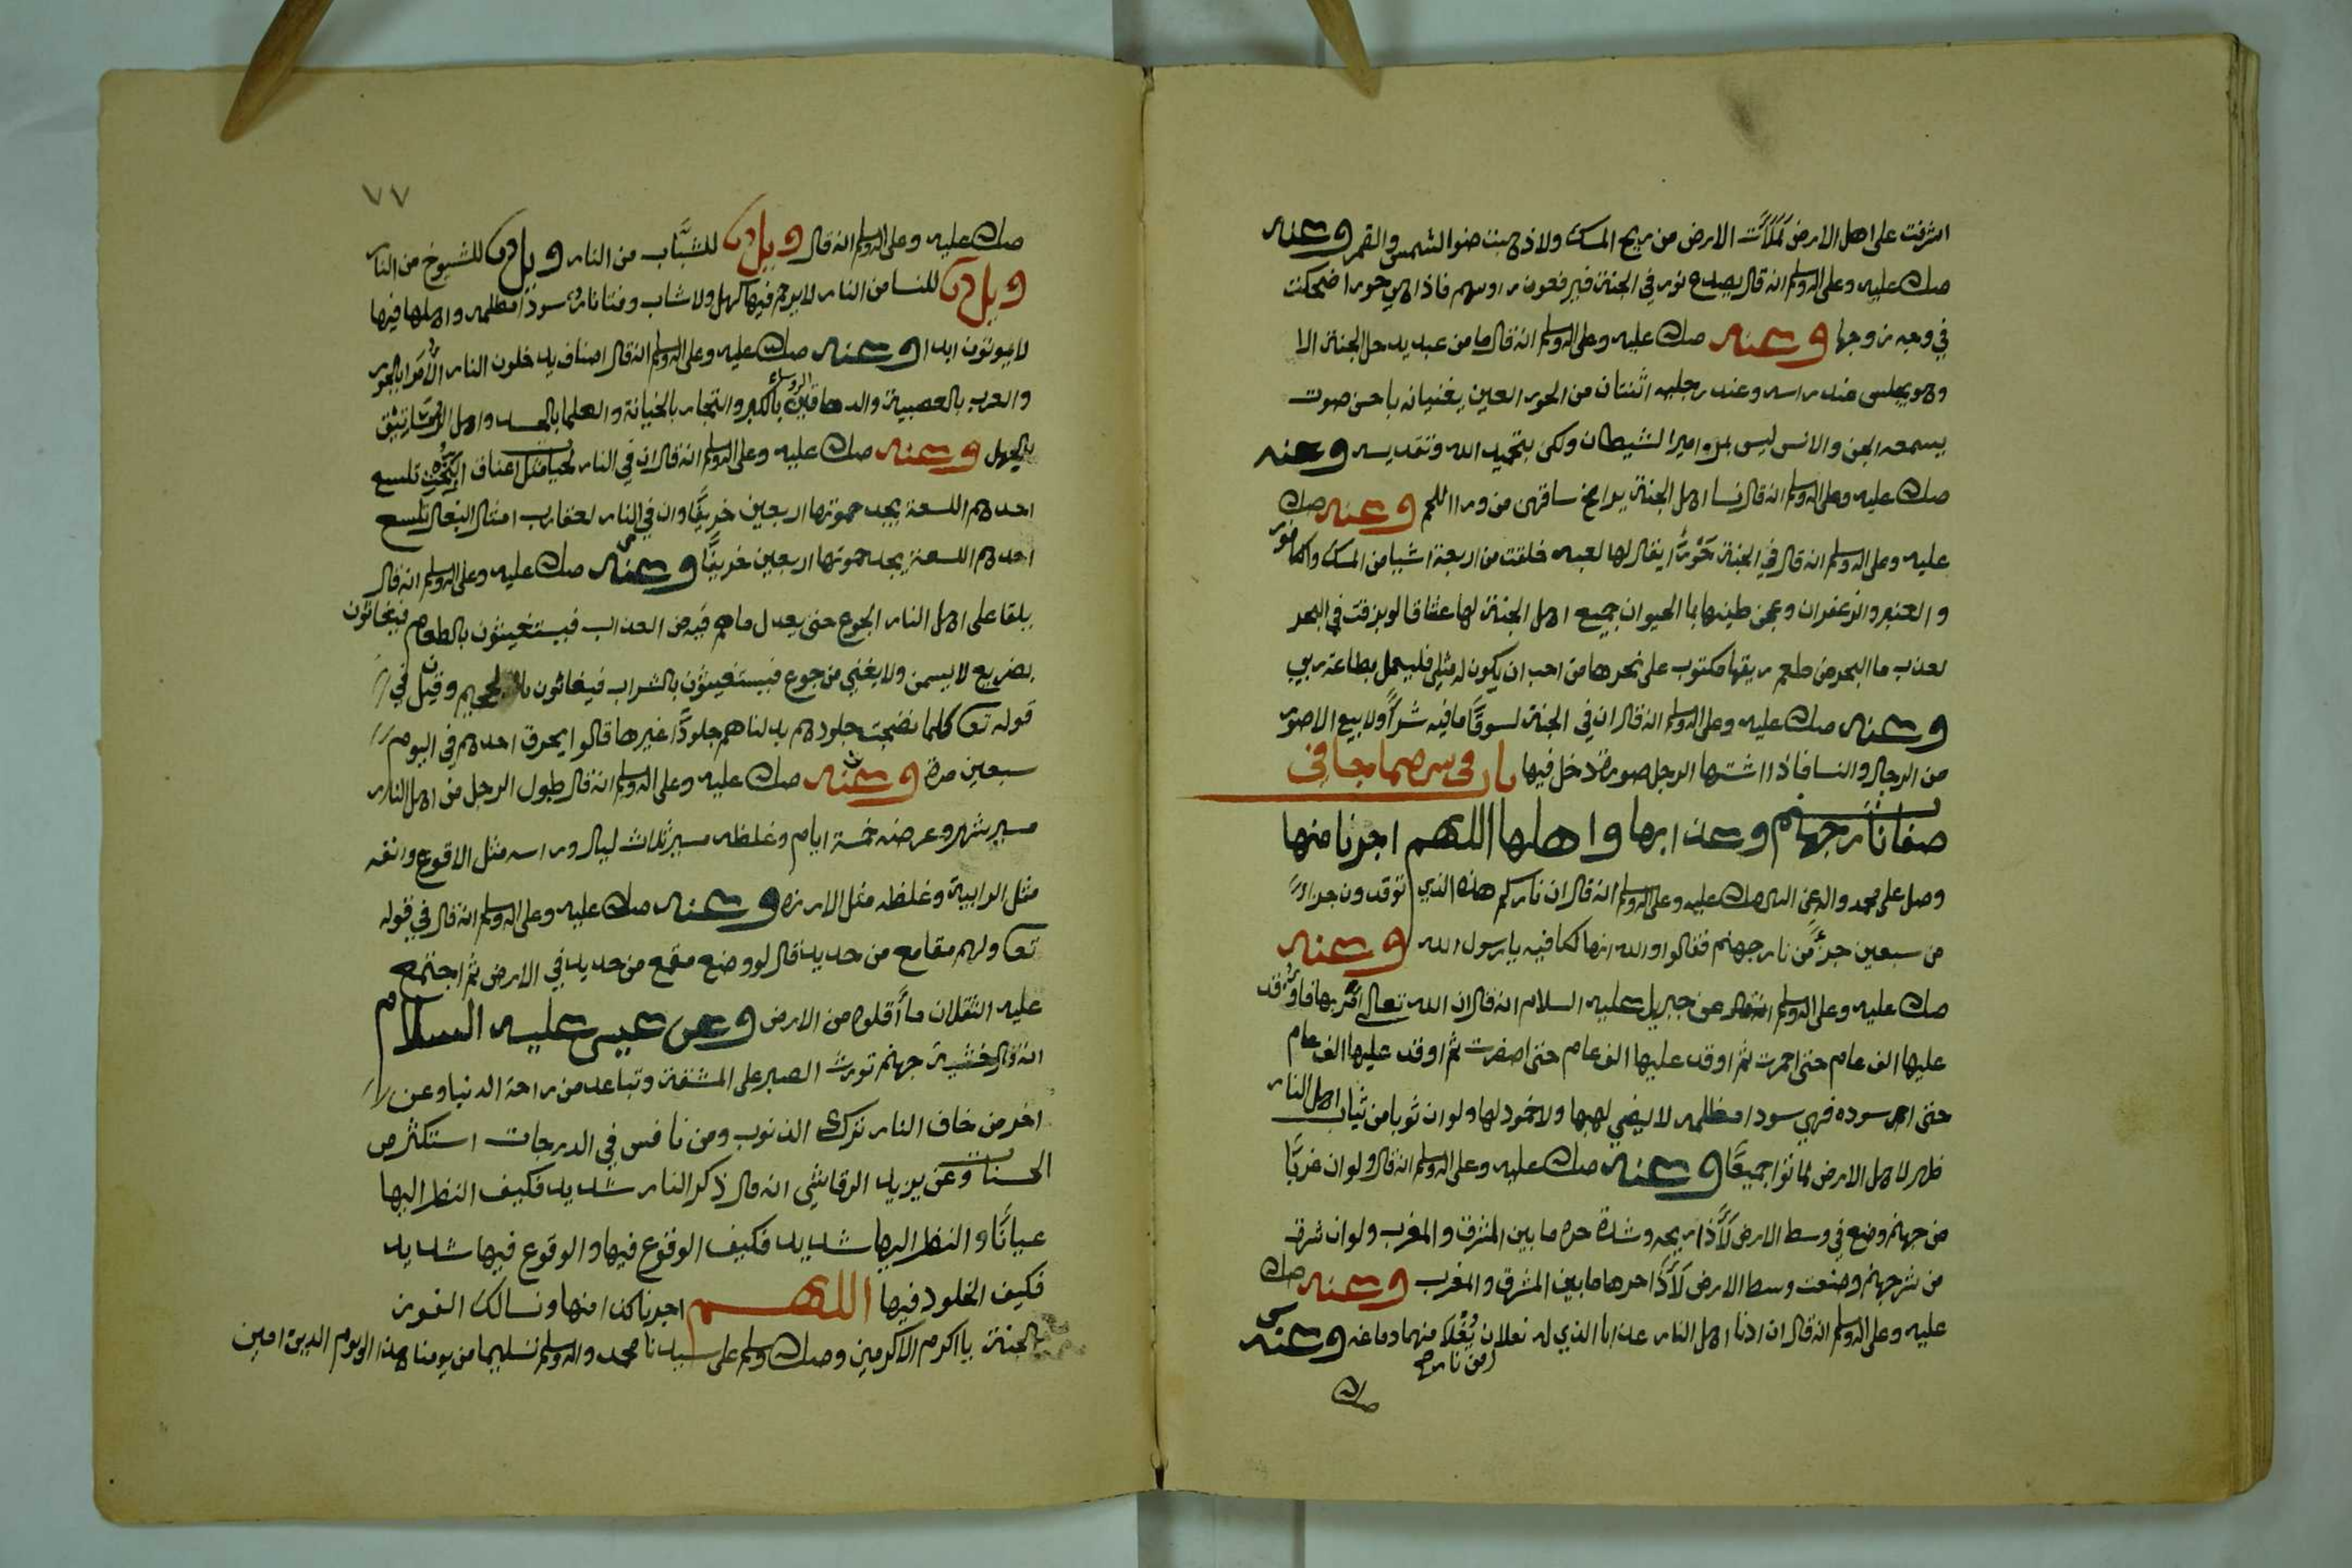 اشرفت على اهل الارض لملأت الارض من ريح المسك ولاذهبت ضوا الشمس والقمر وعنه
صلى الله عليه وعلى اله وسلم انه قال يصدع نور في الجنة فيرفعون روسهم فاذا هي حورا ضحكت
في وجه زوجها وعنه صلى الله عليه وعلى اله وسلم انه قال ما من عبد يدخل الجنة الا
وهو يجلس عند راسه وعند رجليه اثنتان من الحور العين يغنيانه باحسن صوت
يسمعه الجن والانس ليس بمزامير الشيطان ولكن بتحميد الله وتقديسه وعنه
صلى الله عليه وعلى اله وسلم انه قال نسا اهل الجنة يرا مخ ساقهن من ورا اللحم وعنه صلى الله
عليه وعلى اله وسلم انه قال في الجنة حورا يقال لها لعبه خلقت من اربعة اشيا من المسك والكافور
والعنبر والزعفران وعجن طينها بما الحيوان جميع اهل الجنة لها عشاقا لو بزقت في البحر
لعذب ما البحر من طعم ريقها مكتوب على نحرها من احب ان يكون له مثلي فليعمل بطاعة ربي
وعنه صلى الله عليه وعلى اله وسلم انه قال ان في الجنة لسوقا ما فيه شرا ولا بيع الا صور
من الرجال والنسا فاذا اشتها الرجل صورة دخل فيها باب في بيان ما جا في
صفا نار جهنم وعذابها واهلها اللهم اجرنا منها
وصل على محمد واله عن النبي صلى الله عليه وعلى اله وسلم انه قال ان ناركم هذه الذي توقدون جزا
من سبعين جزء من نار جهنم فقالوا والله انها لكافيه يا رسول الله وعنه
صلى الله عليه وعلى اله وسلم عن جبريل عليه السلام انه قال ان الله تعالى امر بها فاوقد
عليها الف عام حتى احمرت ثم اوقد عليها الف عام حتى اصفرت ثم اوقد عليها الف عام
حتى اسوده فهي سودا مظلمه لا يضي لهبها ولا خمود لها ولو ان ثوبا من ثياب اهل النار
ظهر لاهل الارض لماتوا جميعا وعنه صلى الله عليه وعلى اله وسلم انه قال ولو ان غربا
من جهنم وضع في وسط الارض لأذا ريحه وشدة حره ما بين المشرق والمغرب ولو ان شرفه
من شر جهنم وضعت وسط الارض لأذا حرها ما بين المشرق والمغرب وعنه صلى الله
عليه وعلى اله وسلم انه قال ان ادنا اهل النار عذابا الذي له نعلان يغلي منهما دماغه وعنه
من نار
صلى الله
٧٧
صلى الله عليه وعلى اله وسلم انه قال ويل للشباب من النار ويل للشيوخ من النار
ويل للنسا من النار لا يرحم فيها كهل ولا شاب سودا مظلمه واهلها فيها
لا يموتون ابدا وعنه صلى الله عليه وعلى اله وسلم انه قال اصناف يدخلون النار الأمرا بالجور
والعرب بالعصبية والدهاقين الروساء بالكبر والتجار بالخيانة والعلما بالحسد واهل الرساتيق
بالجهل وعنه صلى الله عليه وعلى اله وسلم انه قال ان في النار لحيات مثل اعناق البخت تلسع
احدهم اللسعة يجد حموتها اربعين خريفا وان في النار لعقارب امثال البغال تلسع
احدهم اللسعة يجد حموتها اربعين خريفا وعنه صلى الله عليه وعلى اله وسلم انه قال
يلقا على اهل النار الجوع حتى يعدل ما هم فيه من العذاب فيستغيثون بالطعام فيغاثون
بضريع لا يسمن ولا يغني من جوع فيستغيثون بالشراب فيغاثون بالحميم وقيل في
قوله تعا كلما نضجت جلودهم بدلناهم جلودا غيرها قالوا يحرق احدهم في اليوم
سبعين مرة وعنه صلى الله عليه وعلى اله وسلم انه قال طول الرجل من اهل النار
مسير شهر وعرضه خمسة ايام وغلظه مسير ثلاث ليال وراسه مثل الاقرع وانفه
مثل الرابية وغلظه مثل الارزه وعنه صلى الله عليه وعلى اله وسلم انه قال في قوله
تعا ولهم مقامع من حديد قال لو وضع مقمع من حديد في الارض ثم اجتمع
عليه الثقلان ما أقلوه من الارض وعن عيسى عليه السلام
انه قال خشية جهنم تورث الصبر على المشقة وتباعد من راحة الدنيا وعن
اخر من خاف النار ترك الذنوب ومن نافس في الدرجات استكثر من
الحسنات وعن يزيد الرقاشي انه قال ذكر النار شديد فكيف النظر اليها
عيانا والنظر اليها شديد فكيف الوقوع فيها والوقوع فيها شديد
فكيف الخلود فيها اللهم اجرنا منها ونسالك الفوز
بالجنة يا اكرم الاكرمين وصلى الله وسلم على سيدنا محمد واله وسلم تسليما من يومنا هذا الى يوم الدين امين